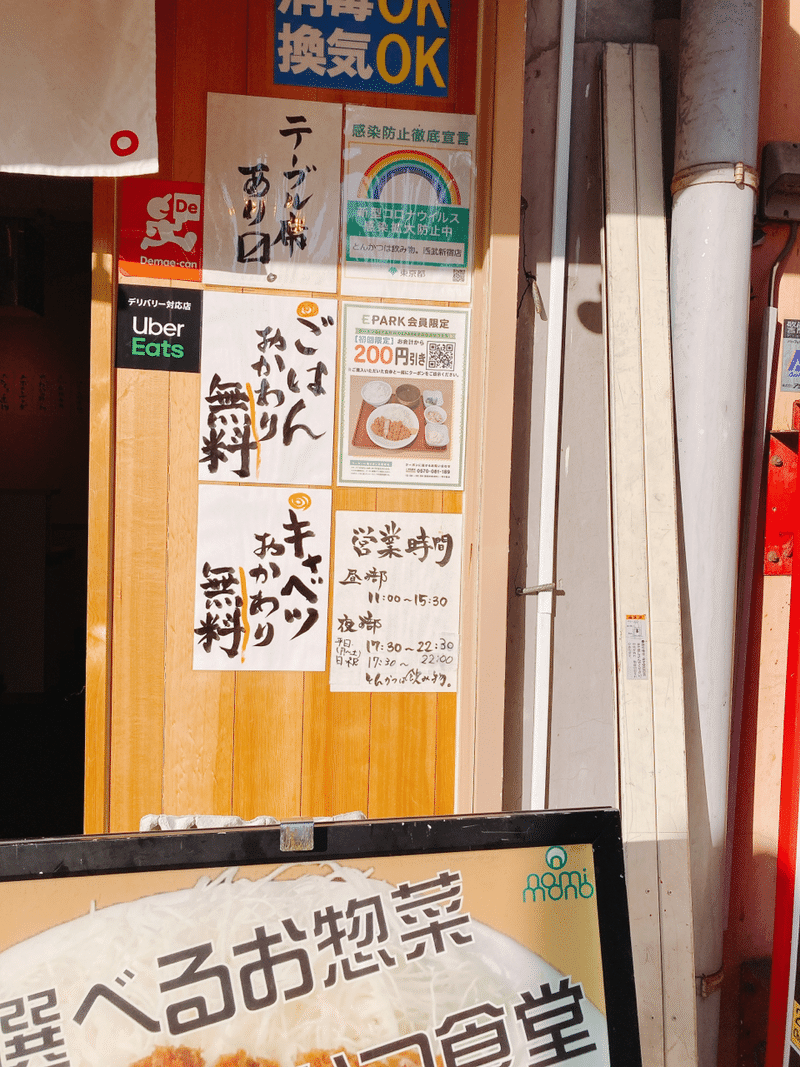 消毒OK
換気OK
テーブル席
あり口。
感染防止徹底宣言
新型コロナウイルス
感染拡大防止中
とんかつは飲み物。西武新宿店
東京都
De
Demae-can
デリバリー対応店
Uber
Eats
ごはん
おかわり
無料
EPARK会員限定
【初回限定】お会計から
200円引き
0570-081-189
キャベツ
おかわり
無料
営業時間
昼御
11:00〜15:30
夜御
平日 17:30〜22:30
日祝 17:30〜22:00
とんかつは飲み物。
nomi
mono
選べるお惣菜
つ食堂